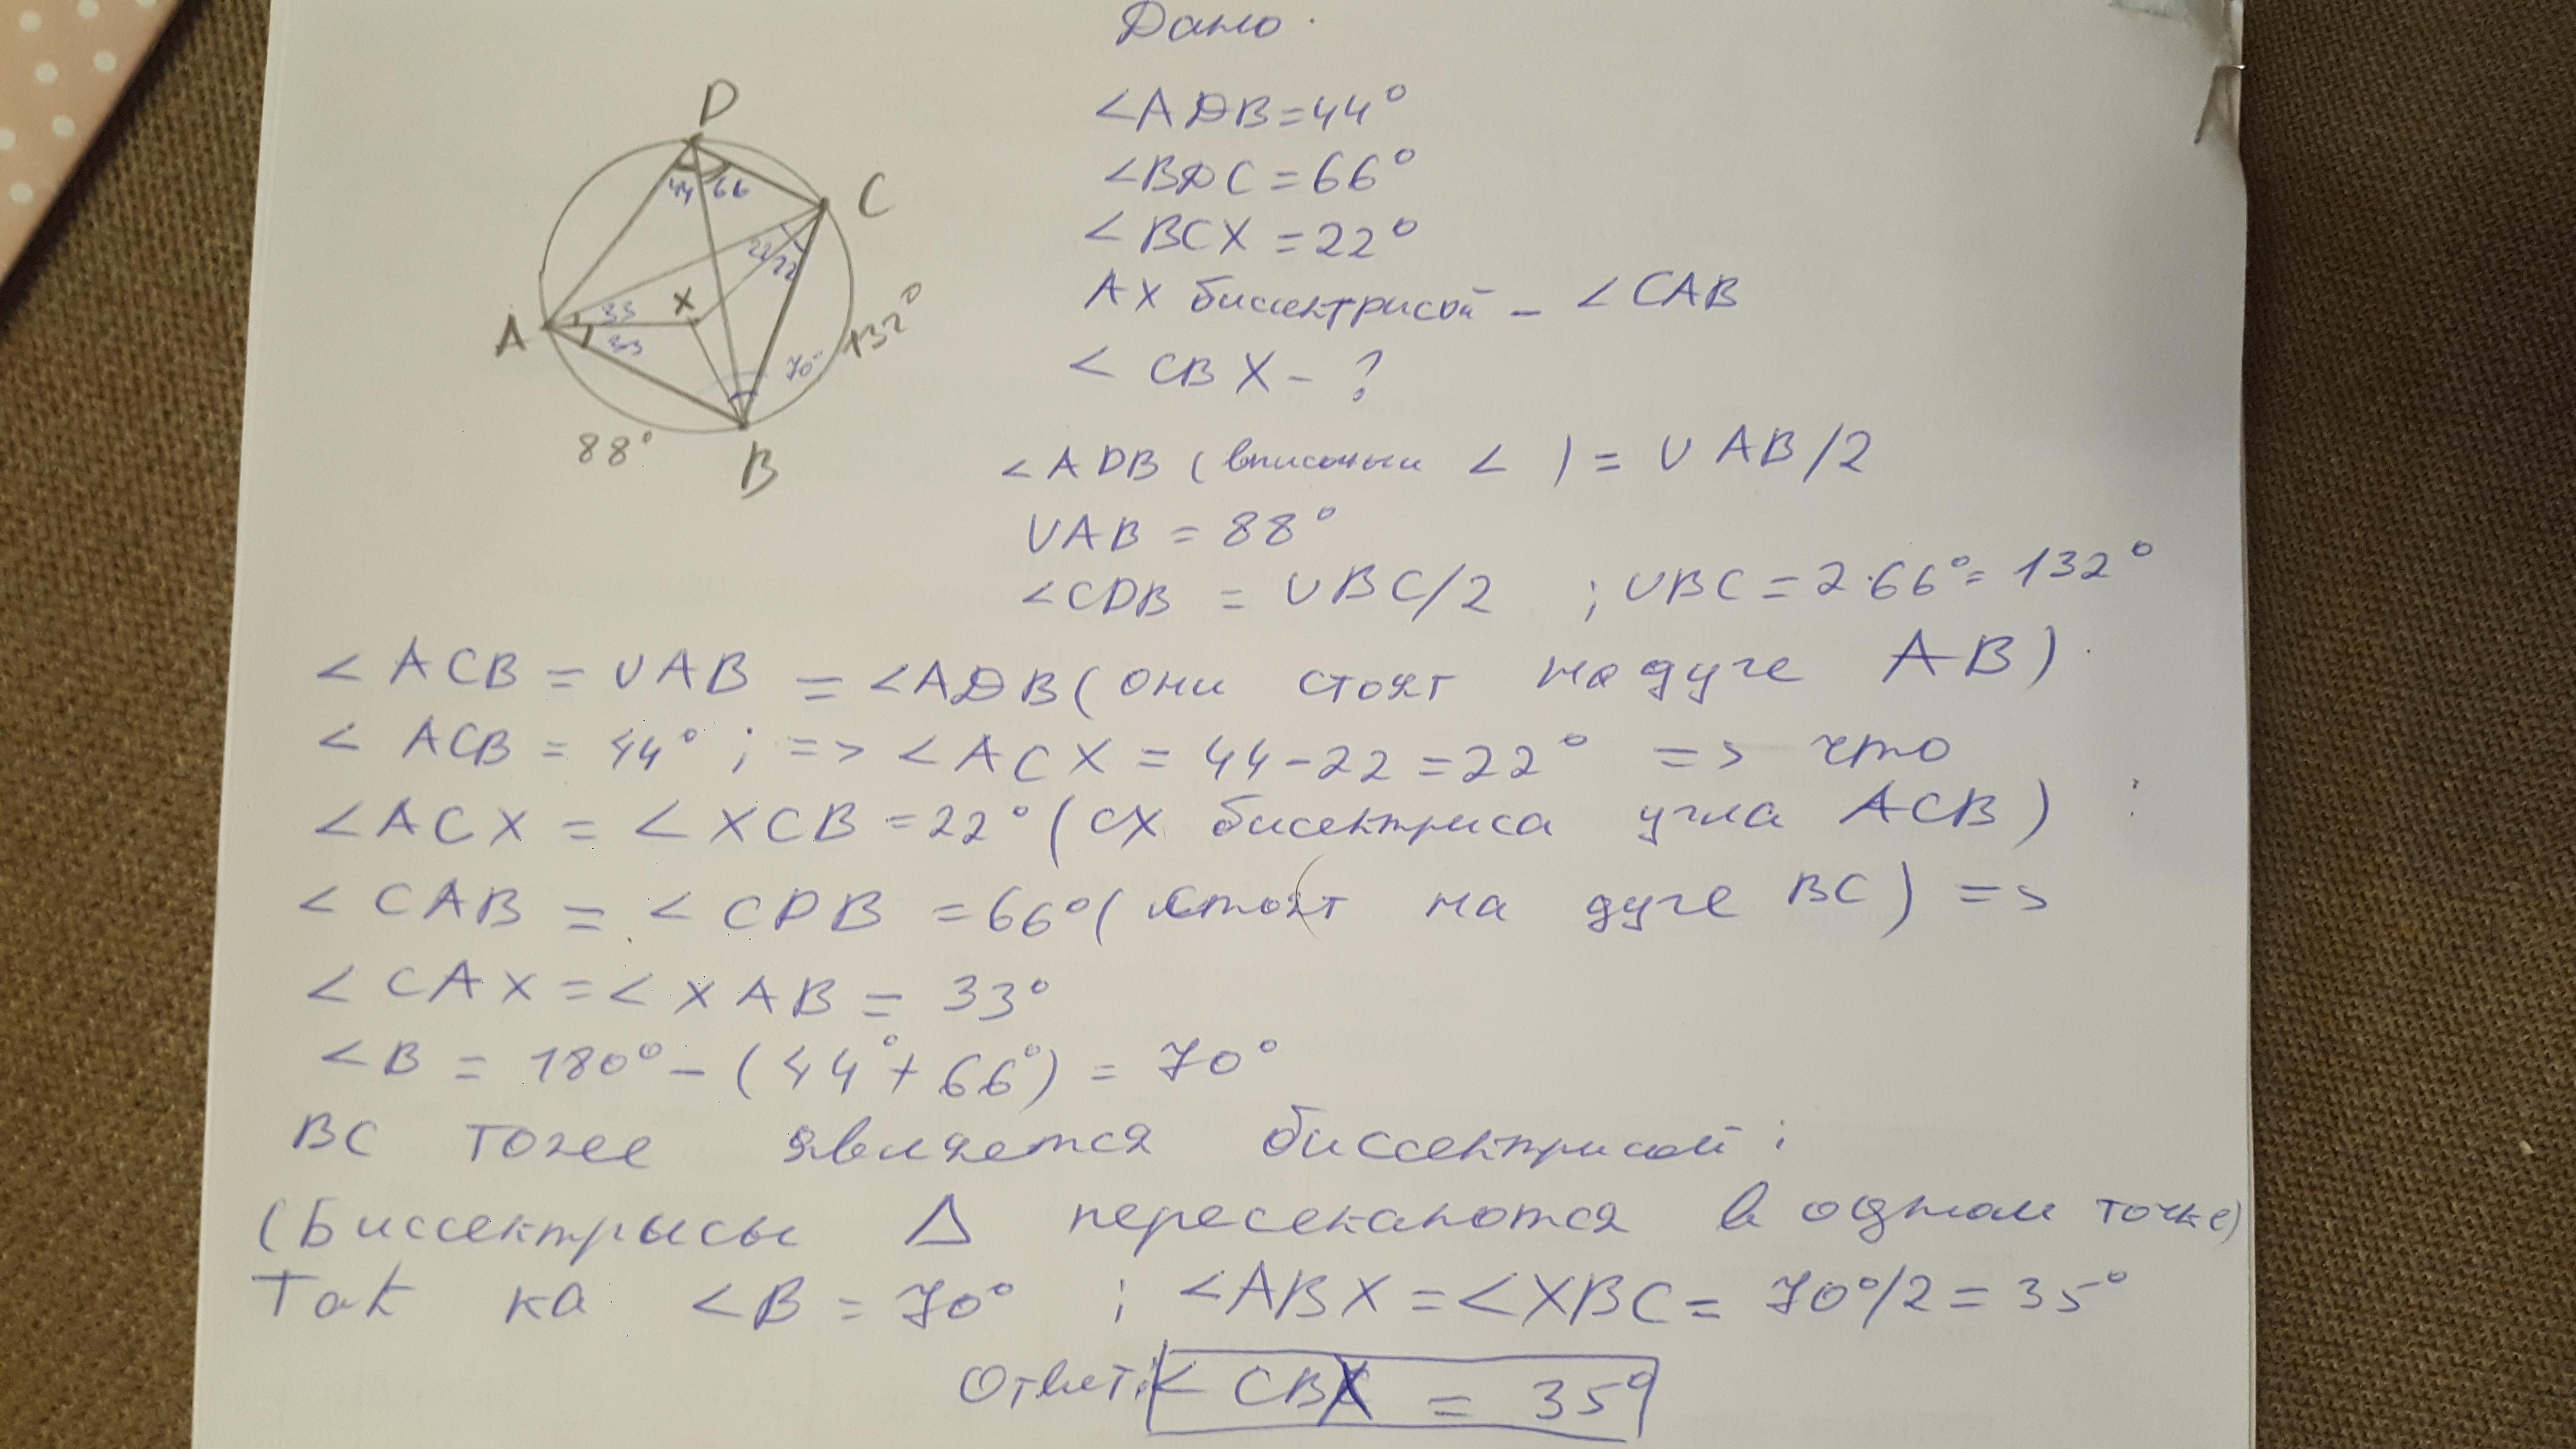 Дано:
∠ADB=44°
∠BDC=66°
∠BCX=22°
AX биссектрисой - ∠CAB
∠CBX-?
D
44 66
C
22
22
X
A
33
33
70°
132°
88°
B
∠ADB (вписаный ∠) = ∪AB/2
∪AB = 88°
∠CDB = ∪BC/2 ; ∪BC=2·66°=132°
∠ACB = ∪AB = ∠ADB (они стоят на дуге AB)
∠ACB = 44° ; => ∠ACX = 44-22=22° => что
∠ACX = ∠XCB =22° (CX бисектриса угла ACB)
∠CAB = ∠CDB =66° (стоят на дуге BC) =>
∠CAX=∠XAB = 33°
∠B = 180°-(44°+66°) = 70°
BC тоже является биссектрисой;
(Биссектрысы Δ пересекаются в одном точке)
Так ка ∠B = 70° ; ∠ABX=∠XBC= 70°/2=35°
Ответ: ∠CBX = 35°